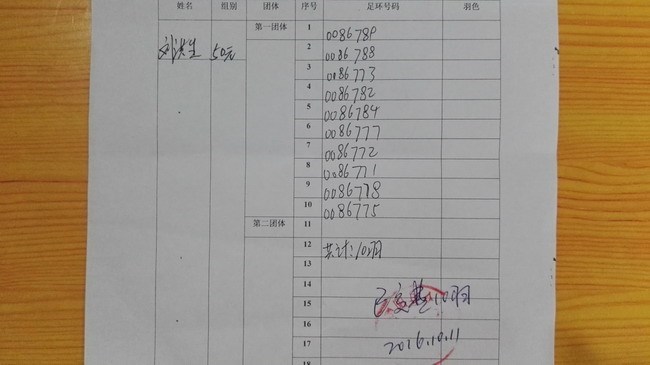 姓名 组别 团体 序号 足环号码 羽色
第一团体 1 0086789
刘洪生 50元 2 0086788
3 0086773
4 0086782
5 0086784
6 0086777
7 0086772
8 0086771
9 0086778
10 0086775
第二团体 11
12 共计:10羽
13
14
已交鸽10羽
15
16
2016.10.11
17
18